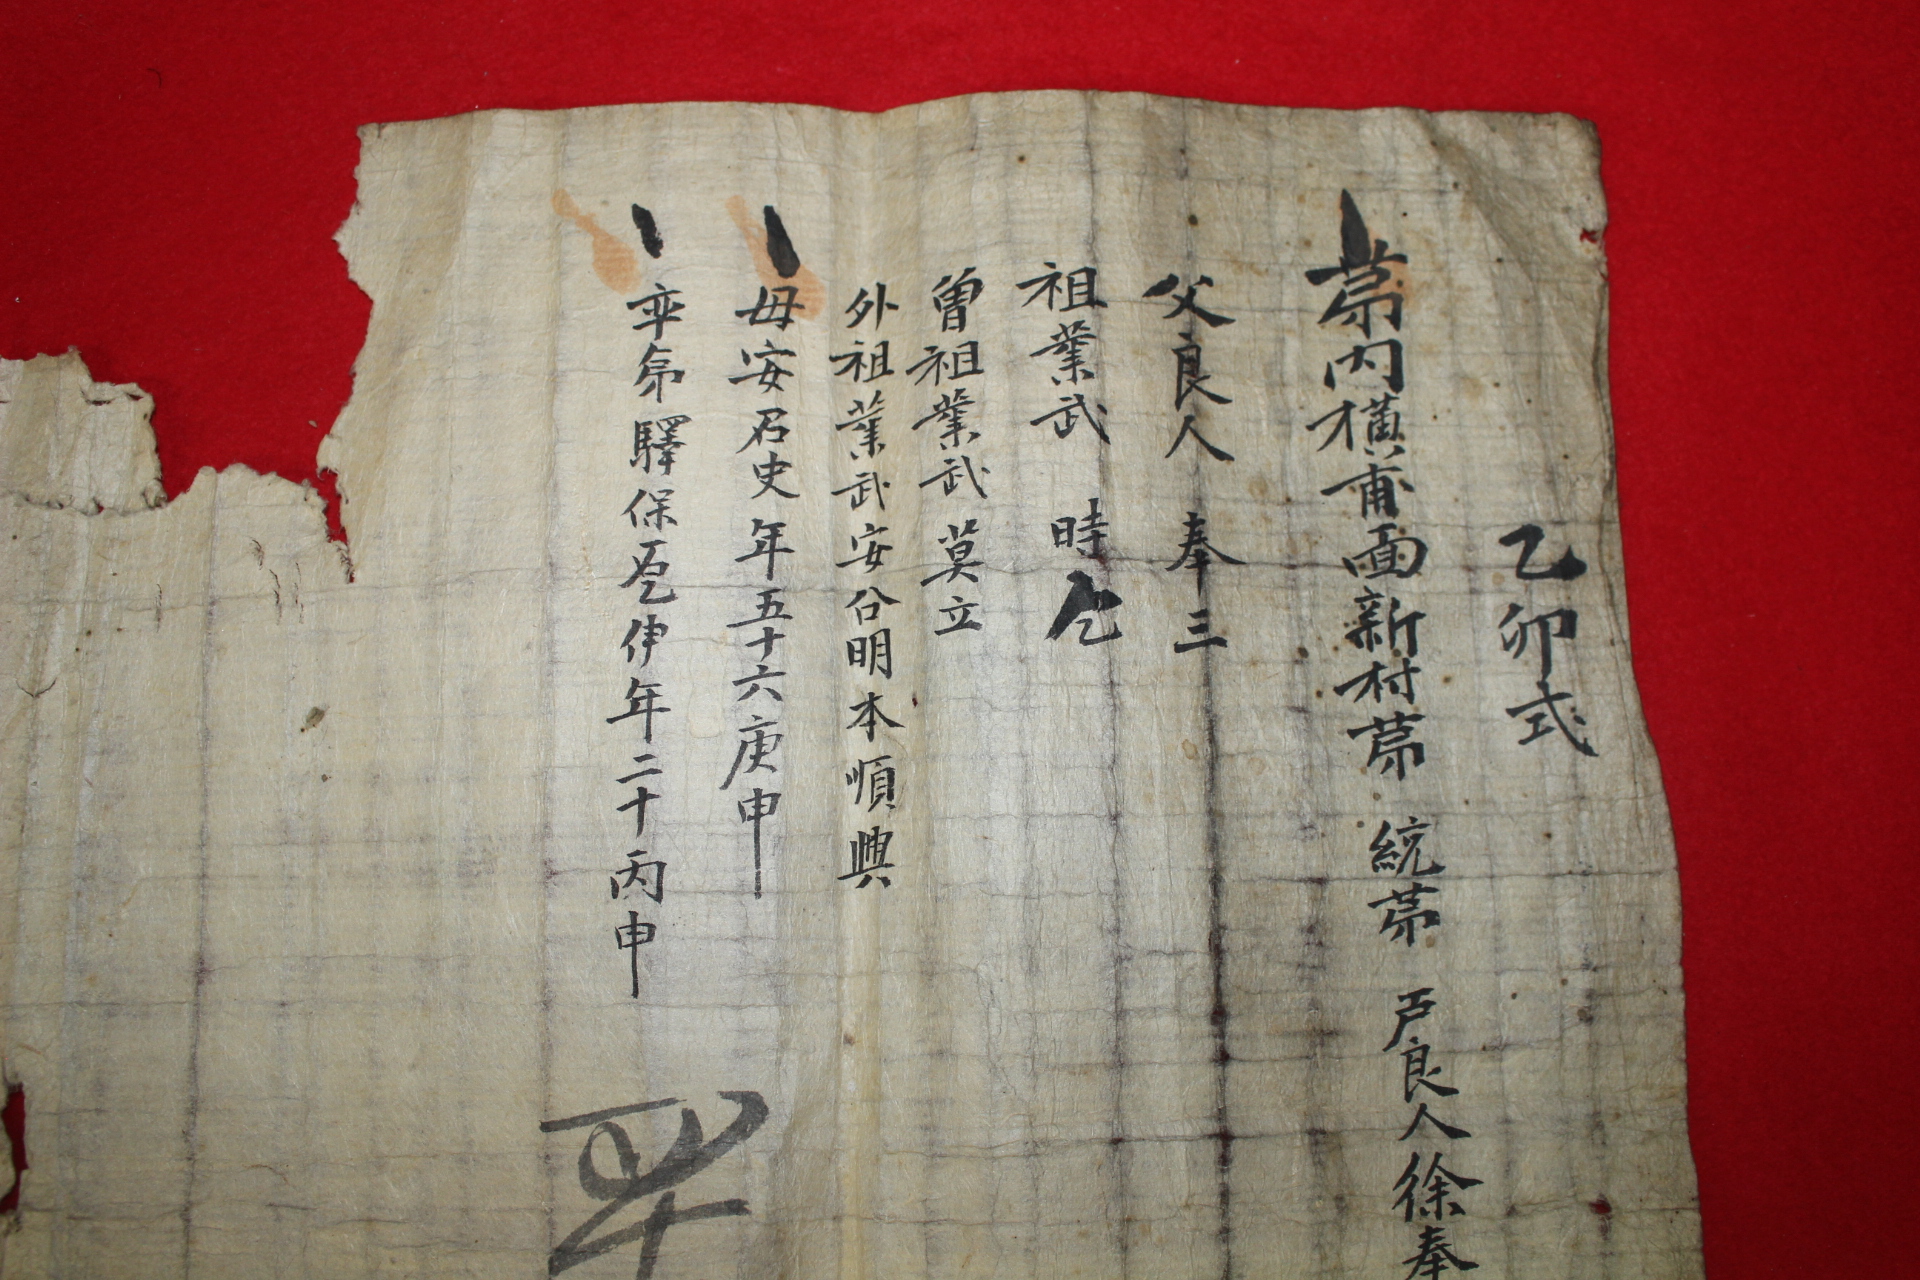 乙卯式
第内横甫面新村第 統第 戸良人徐奉
父良人 奉三
祖業武 時
曽祖業武 莫立
外祖業武安公明本順興
母安召史年五十六庚申
率弟驛保 年二十丙申